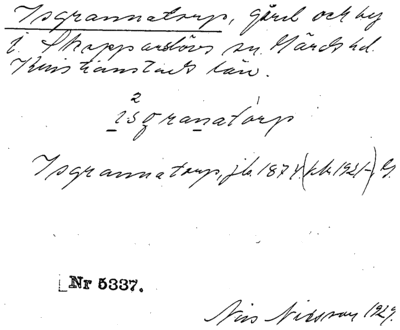 Isgrannatorp, gård och by
i Skepparslövs sn. Gärds hd.
Kristianstads län.
2
isgranatòrp
Isgrannatorp, jb 1874 (kb 1921-), G.
Nr 5337.
Nils Nilsson 1929.